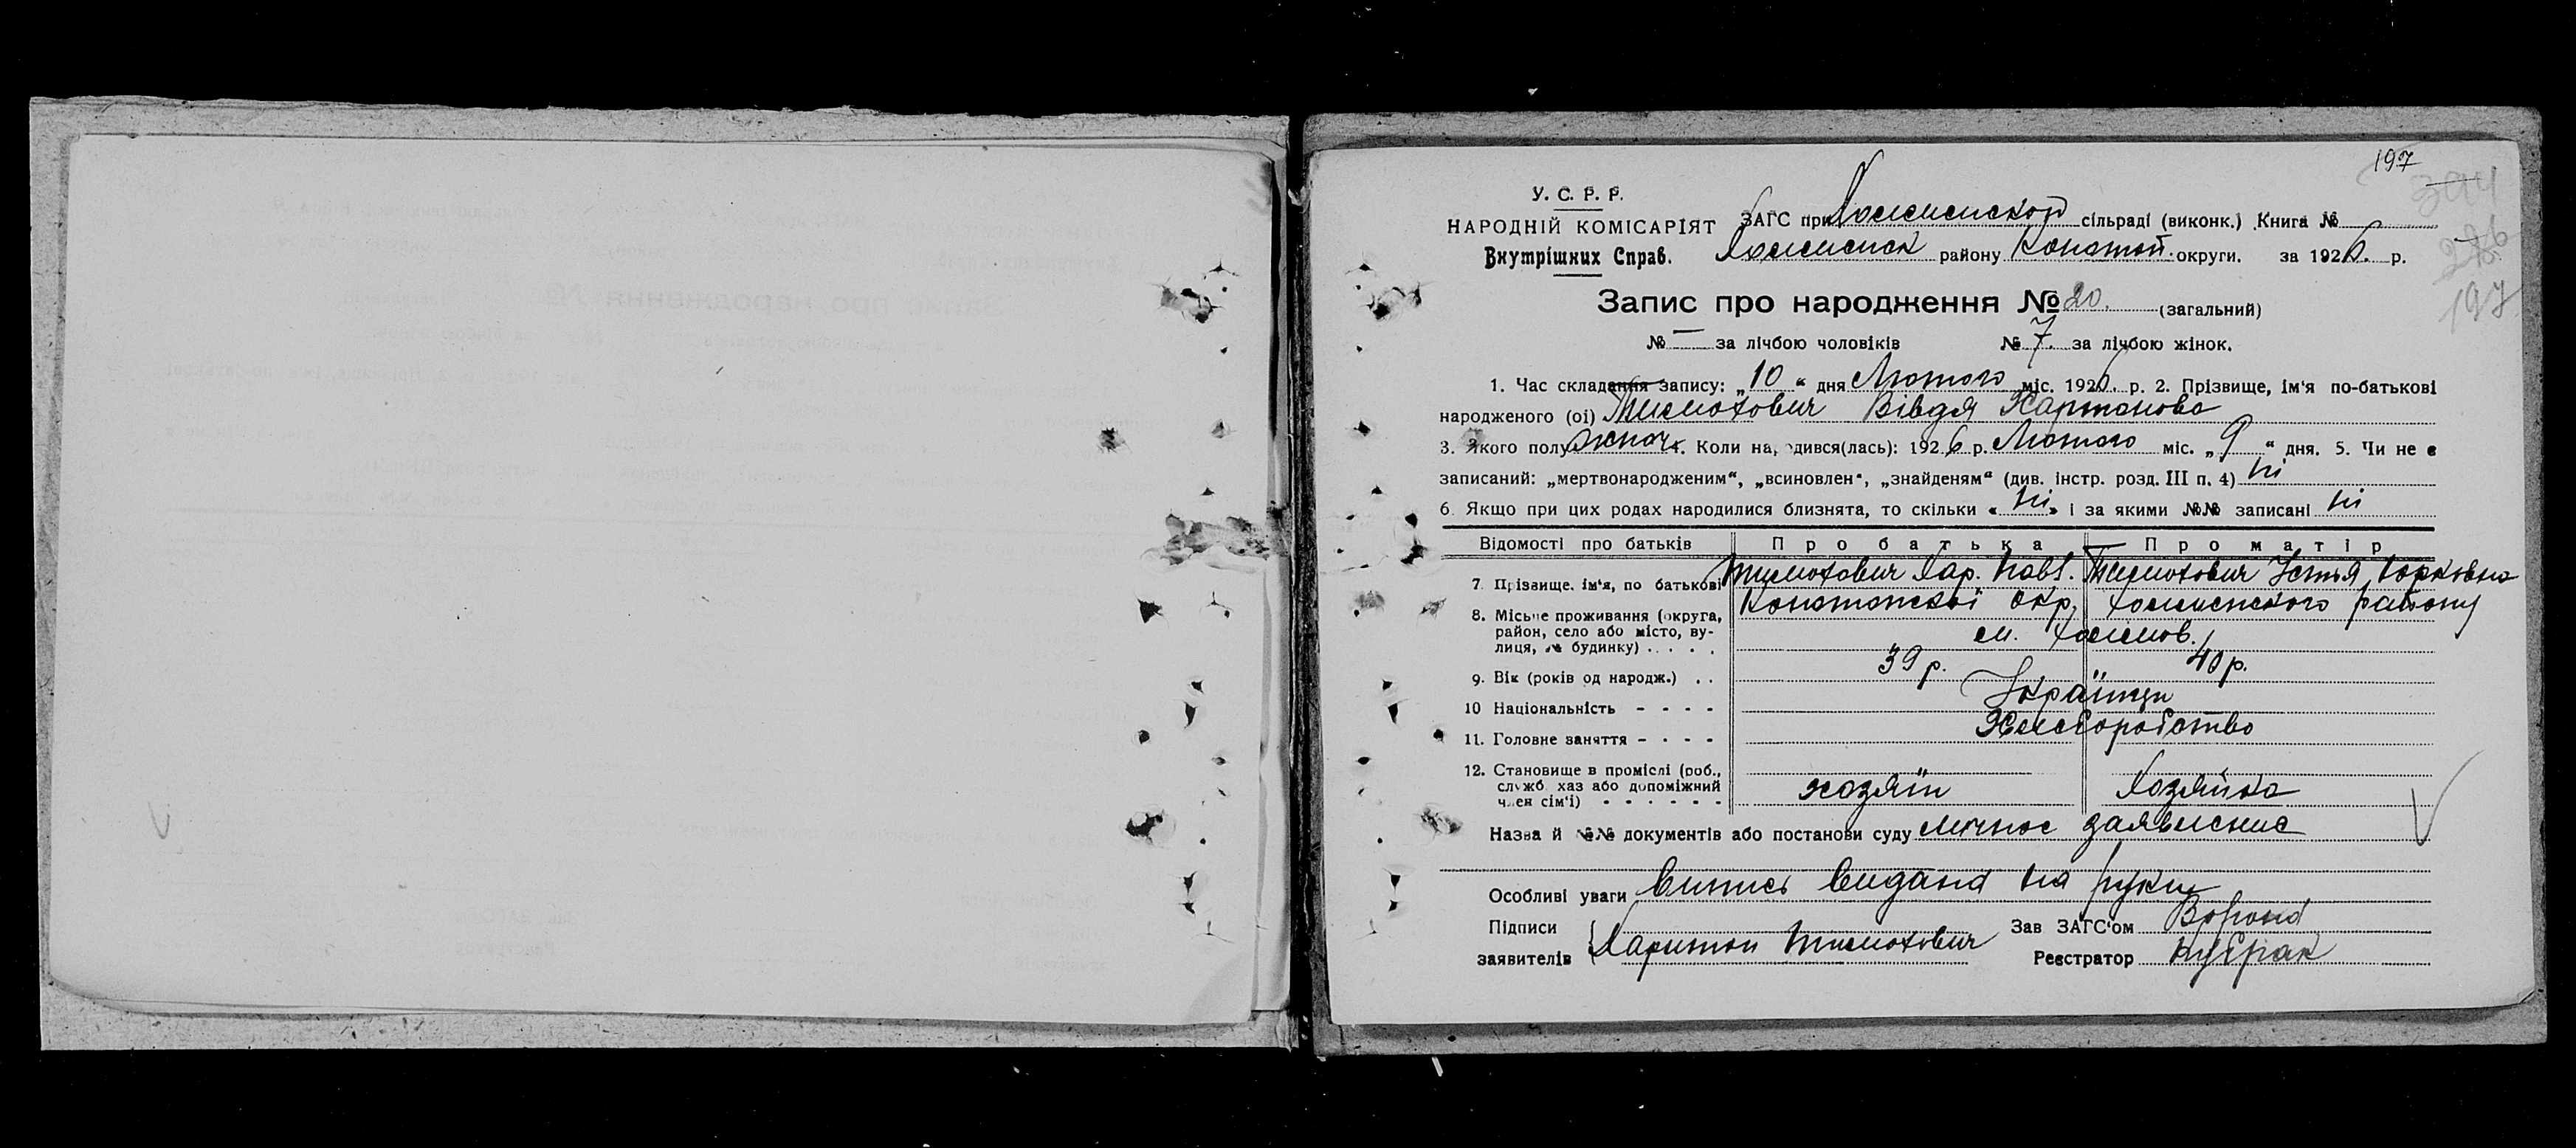 197
394
286
197
У. С. Р. Р.
НАРОДНІЙ КОМІСАРІЯТ
Внутрішних Справ.
ЗАГС при сільраді (виконк.) Книга №
району Конотоп. округи. за 1926. р.
Запис про народження № 20. (загальний)
№ — за лічбою чоловіків № 7. за лічбою жінок.
1. Час складання запису: „10“ дня Лютого міс. 1926. р. 2. Прізвище, ім'я по-батькові
народженого (ої) Тимохович Вівдя Хартонова
3. Якого полу жіноч. 4. Коли народився(лась): 1926 р. Лютого міс. „9“ дня. 5. Чи не є
записаний: „мертвонародженим“, „всиновлен“, „знайденям“ (див. інстр. розд. III п. 4) Ні
6. Якщо при цих родах народилися близнята, то скільки « Ні » і за якими №№ записані Ні
Відомості про батьків Про батька Про матір
7. Прізвище, ім'я, по батькові Тимохович Хар. Павл. Тимохович Устья Юрковна
8. Місьце проживання (округа, район, село або місто, вулиця, № будинку) Конотопскоі окр, району
м.
9. Вік (років од народж.) 39 р. 40 р.
10 Національність - - - - Українци
11. Головне заняття - - - - Хлеборобство
12. Становище в промислі (роб., служб. хаз або допоміжний член сім'ї) - - - - - - хозяїн Хозяйка
Назва й №№ документів або постанови суду лічное заявление
Особливі уваги Випись видана на руки
Підписи заявителів Харитон Тимохович
Зав ЗАГС'ом Ворона
Реєстратор Кубрак